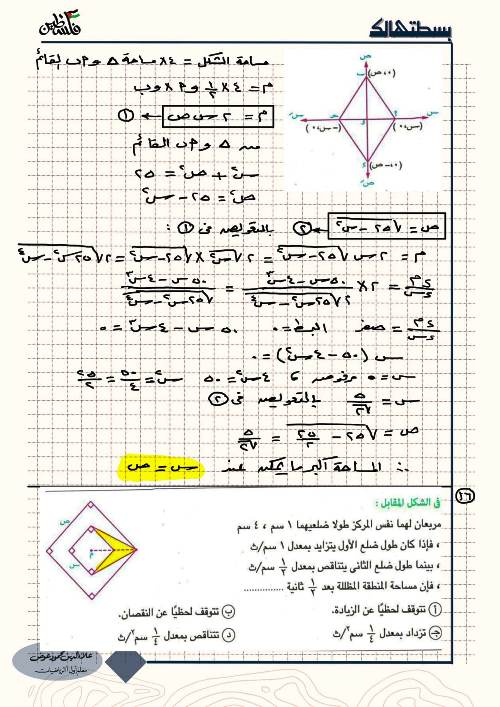 فلسطين
بسطتهالك
مساحة الشكل = ٤ × مساحة △ و م ب القائم
م = ٤ × ١/٢ و م × و ب
م = ٢ س ص ← ①
من △ و م ب القائم
س² + ص² = ٢٥
ص² = ٢٥ - س²
ص = √(٢٥ - س²) ← ② بالتعويض في ① :
م = ٢ س √(٢٥ - س²) = ٢ √س² × √(٢٥ - س²) = ٢ √(٢٥ س² - س⁴)
ءم/ءس = ٢ × (٥٠ س - ٤ س³)/(٢ √(٢٥ س² - س⁴)) = (٥٠ س - ٤ س³)/√(٢٥ س² - س⁴)
ءم/ءس = صفر البسط = ٠ ٥٠ س - ٤ س³ = ٠
س (٥٠ - ٤ س²) = ٠
س = ٠ مرفوض ، ٤ س² = ٥٠ س² = ٥٠/٤ = ٢٥/٢
س = ٥/√٢ بالتعويض في ②
ص = √(٢٥ - ٢٥/٢) = ٥/√٢
∴ المساحة أكبر ما يمكن عند س = ص
ص
ب (٠ ، ص)
س
(س ، ٠)
(-س ، ٠)
س́
و
ء
(٠ ، -ص)
ص́
٤٦
في الشكل المقابل :
مربعان لهما نفس المركز طولا ضلعيهما ١ سم ، ٤ سم
، فإذا كان طول ضلع الأول يتزايد بمعدل ١ سم/ث
، بينما طول ضلع الثاني يتناقص بمعدل ١/٢ سم/ث
، فإن مساحة المنطقة المظللة بعد ١/٢ ثانية ..............
أ تتوقف لحظيًا عن الزيادة.
ب تتوقف لحظيًا عن النقصان.
ج تزداد بمعدل ١/٤ سم²/ث
د تتناقص بمعدل ١/٤ سم²/ث
ص
س
م
علاء الدين محمود عوض
معلم أول أ الرياضيات